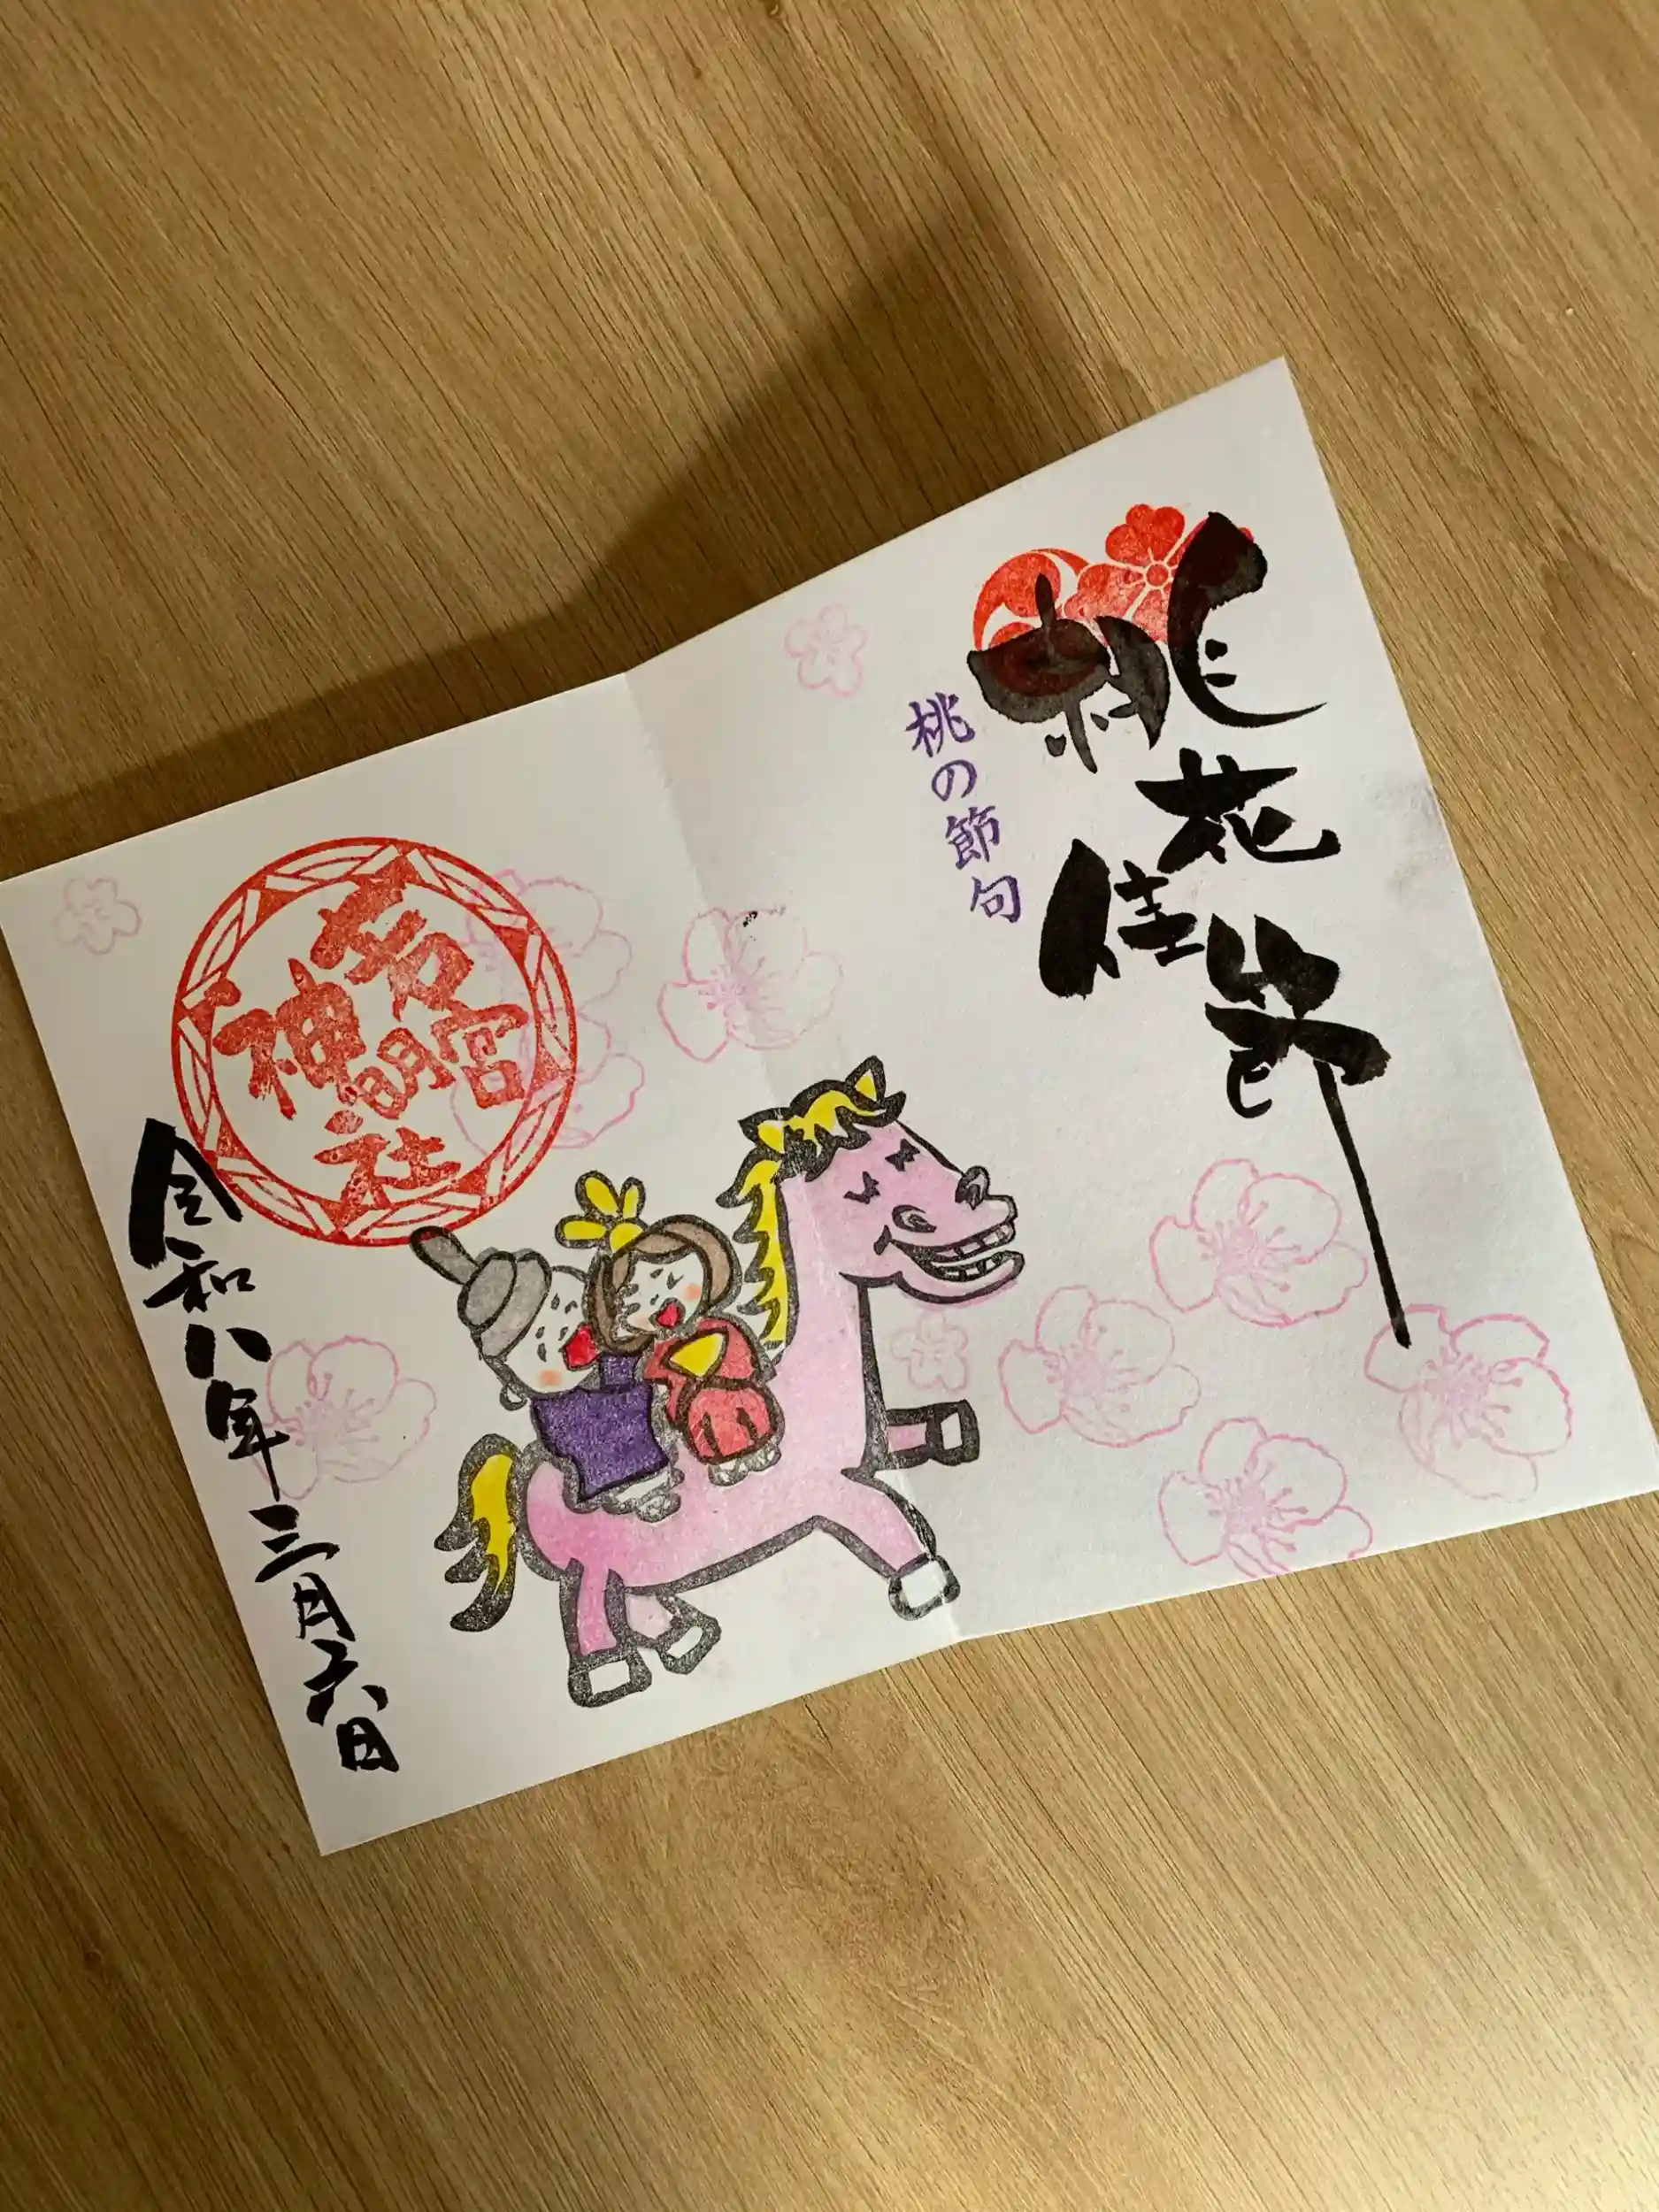 桃花
佳節
桃の節句
若宮
神明
社
令和八年三月六日